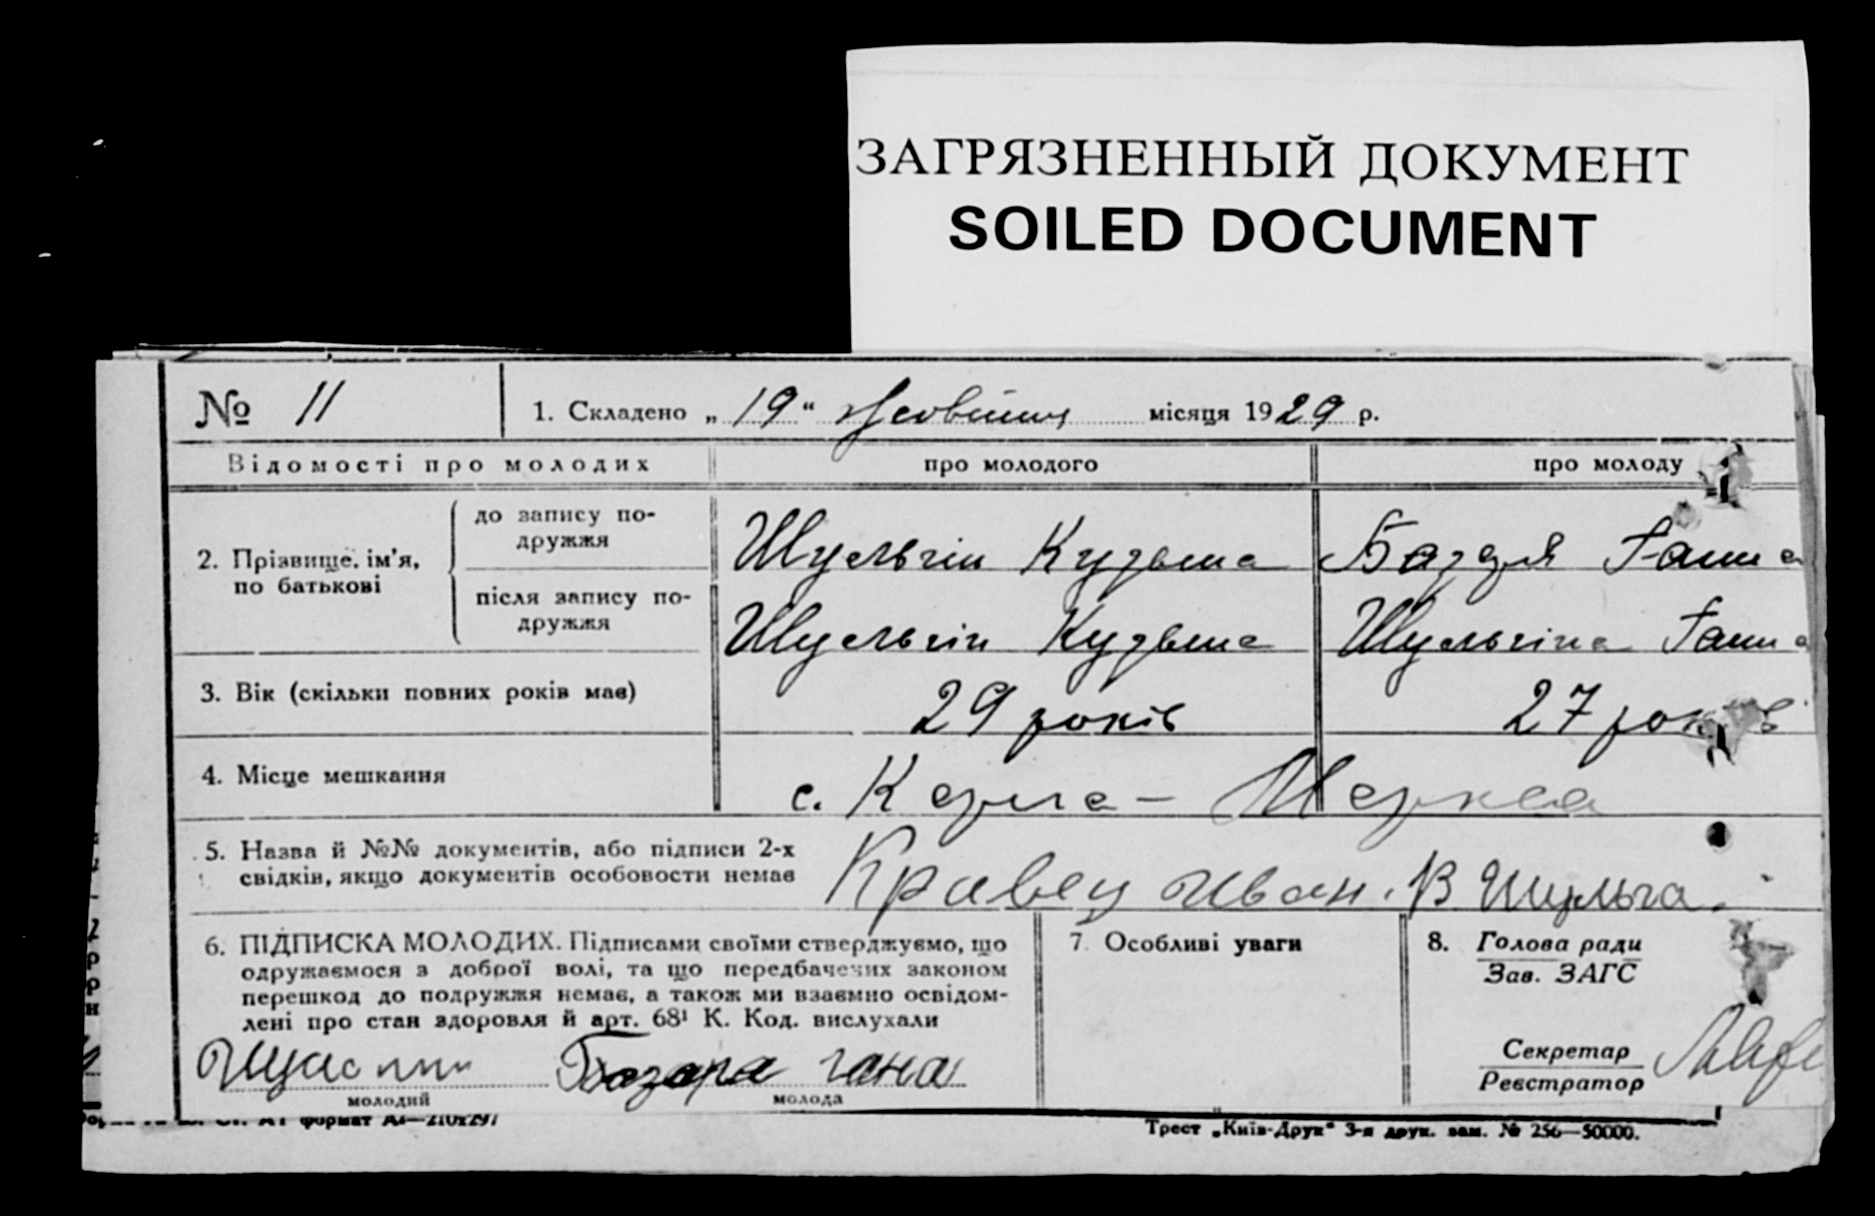 ЗАГРЯЗНЕННЫЙ ДОКУМЕНТ
SOILED DOCUMENT
№ 11
1. Складено „ 19 “ Жовтня місяця 1929 р.
Відомості про молодих
про молодого
про молоду
2. Прізвище, ім'я, по батькові
до запису по-
дружжя
Шульгін Кузьма
Ганна
після запису по-
дружжя
Шульгін Кузьма
Шульгіна Ганна
3. Вік (скільки повних років має)
29 років
27 років
4. Місце мешкання
с.
5. Назва й №№ документів, або підписи 2-х
свідків, якщо документів особовости немає
Кравец Иван. В Шульга.
6. ПІДПИСКА МОЛОДИХ. Підписами своїми стверджуємо, що
одружаємося з доброї волі, та що передбачених законом
перешкод до подружжя немає, а також ми взаємно освідом-
лені про стан здоровля й арт. 68¹ К. Код. вислухали
гана
молодий
молода
7. Особливі уваги
8. Голова ради
Зав. ЗАГС
Секретар
Реєстратор
формат А4—210х297
Трест „Київ-Друк“ 3-я друк. зам. № 256—50000.